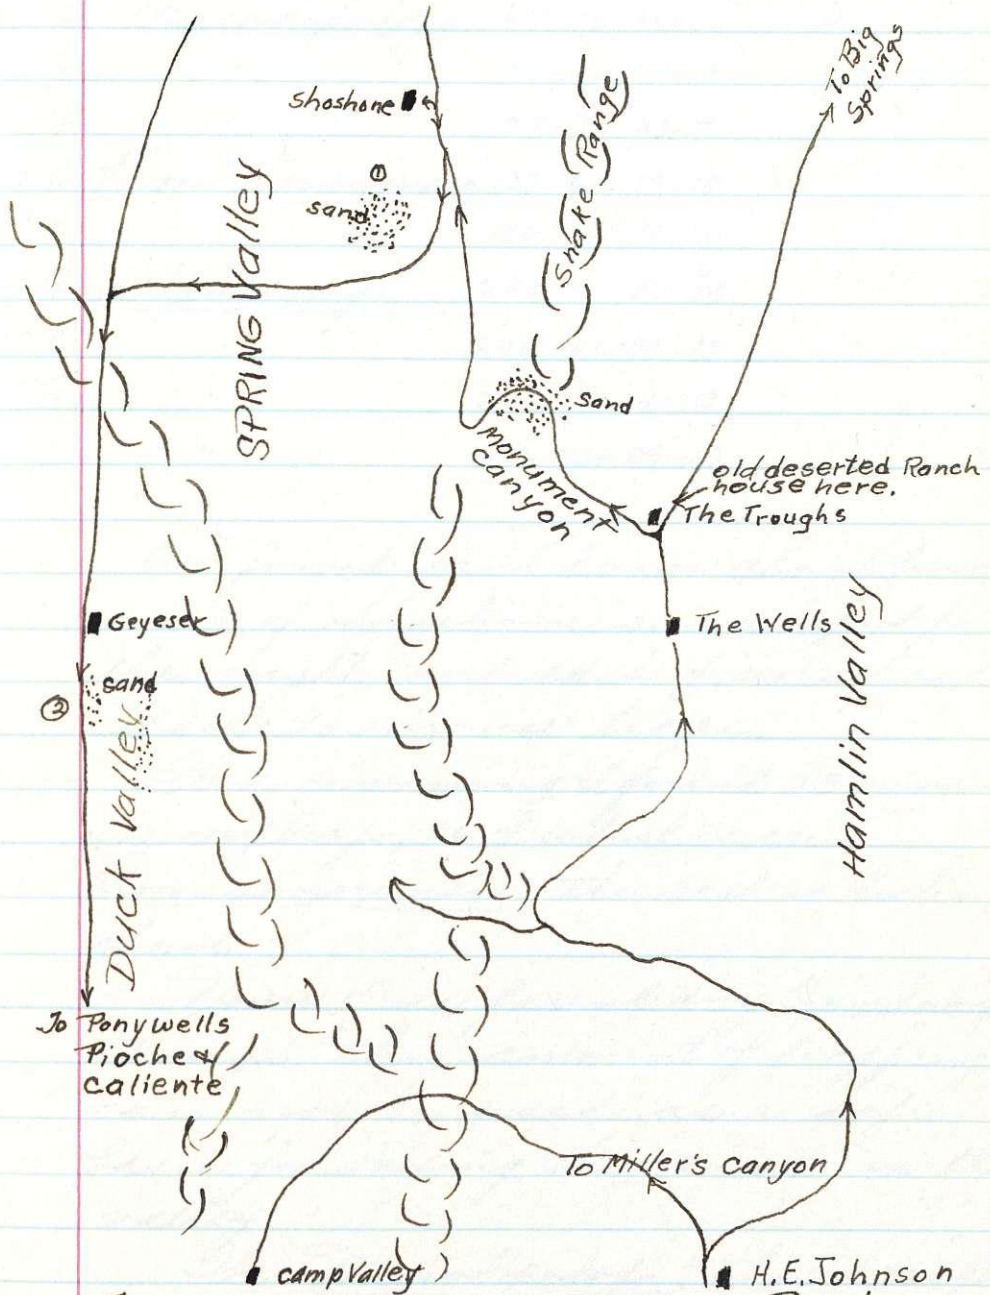 To Big
Springs
Shoshone
Snake Range
①
sand
SPRING Valley
sand
Monument
Canyon
old deserted Ranch
house here.
The Troughs
Geyeser
The Wells
sand
②
Duck Valley
Hamlin Valley
To Ponywells
Pioche &
Caliente
To Miller's Canyon
Camp Valley
H.E. Johnson